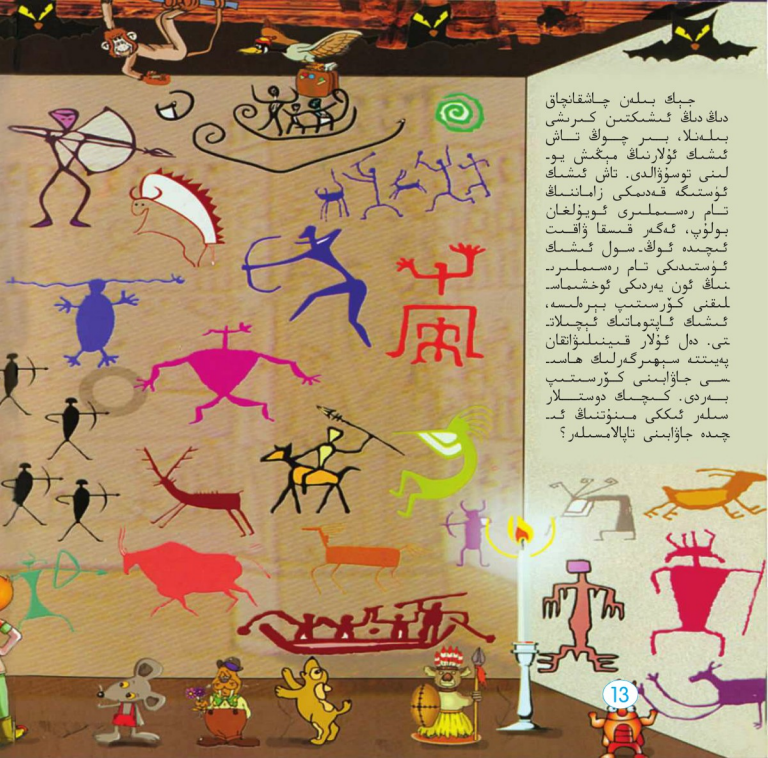 جېك بىلەن چاشقانچاق
دىڭ دىڭ ئىشىكتىن كىرىشى
بىلەنلا، بىر چوڭ تاش
ئىشىك ئۇلارنىڭ مېڭىش يو-
لىنى توسۇۋالدى. تاش ئىشىك
ئۈستىگە قەدىمكى زاماننىڭ
تام رەسىملىرى ئويۇلغان
بولۇپ، ئەگەر قىسقا ۋاقىت
ئىچىدە ئوڭ-سول ئىشىك
ئۈستىدىكى تام رەسىملىرى-
نىڭ ئون يەردىكى ئوخشىماس-
لىقنى كۆرسىتىپ بېرەلىسە،
ئىشىك ئاپتوماتىك ئېچىلات-
تى. دەل ئۇلار قىينىلىۋاتقان
پەيىتتە سېھىرگەرلىك ھاسى-
سى جاۋابىنى كۆرسىتىپ
بەردى. كىچىك دوستلار
سىلەر ئىككى مىنۇتنىڭ ئى-
چىدە جاۋابىنى تاپالامسىلەر؟
13